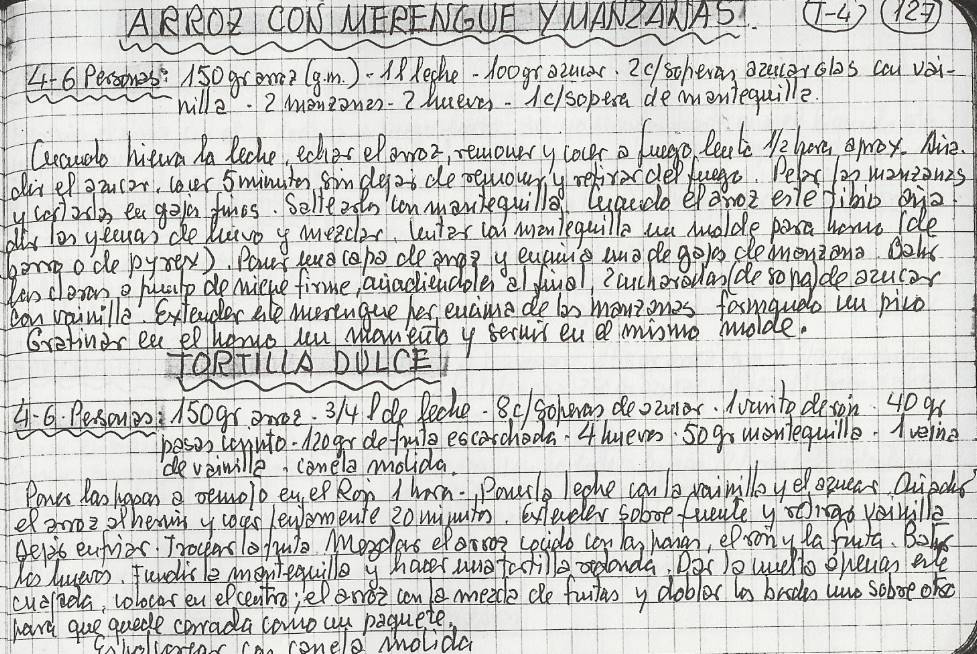 ARROZ CON MERENGUE Y MANZANAS. (T-4) (127)
4-6 Personas: 150 gr arroz (g.m.) - 1 l leche - 100 gr azucar - 2 c/soperas azucar glas con vai-
nilla - 2 manzanas - 2 huevos - 1 c/sopera de mantequilla.
Cuando hierva la leche, echar el arroz, remover y cocer a fuego lento 1/2 hora aprox. Aña-
dir el azucar, cocer 5 minutos, sin dejar de remover y retirar del fuego. Pelar las manzanas
y cortarlas en gajos finos. Saltearlos con mantequilla. Cuando el arroz este tibio aña-
dir las yemas de huevo y mezclar. Untar con mantequilla un molde para horno (de
barro o de pyrex). Poner una capa de arroz y encima una de gajos de manzana. Batir
las claras a punto de nieve firme, añadiendoles al final, 2 cucharadas de sopa de azucar
con vainilla. Extender este merengue por encima de las manzanas formando un pico
Gratinar en el horno un momento y servir en el mismo molde.
TORTILLA DULCE
4-6 Personas: 150 gr arroz - 3/4 l de leche - 8 c/soperas de azucar - 1 vasito de ron - 40 gr
pasas corinto - 120 gr de fruta escarchada - 4 huevos - 50 gr mantequilla - 1 vaina
de vainilla - canela molida.
Poner las pasas a remojo en el Ron 1 hora - Poner la leche con la vainilla y el azucar. Añadir
el arroz al hervir y cocer lentamente 20 minutos. Extender sobre fuente y retirar vainilla
Dejar enfriar. Trocear la fruta. Mezclar el arroz cocido con las pasas, el ron y la fruta. Batir
los huevos. Fundir la mantequilla y hacer una tortilla redonda. Dar la vuelta apenas este
cuajada, colocar en el centro; el arroz con la mezcla de frutas y doblar los bordes uno sobre otro
para que quede cerrada como un paquete.
Espolvorear con canela molida